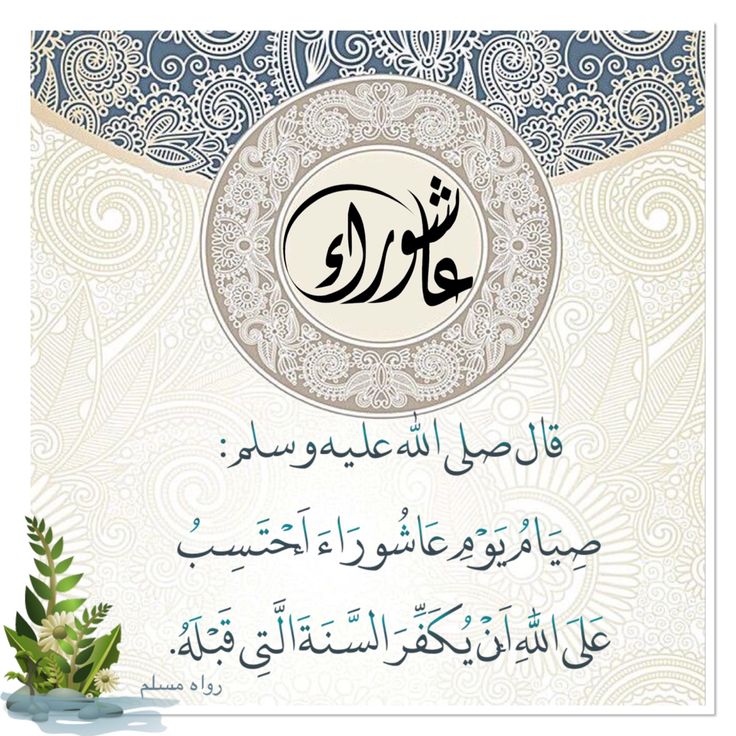 عاشوراء
قال صلى الله عليه وسلم:
صِيَامُ يَوْمِ عَاشُورَاءَ اَحْتَسِبُ
عَلَى اللّٰهِ اَنْ يُكَفِّرَ السَّنَةَ الَّتِي قَبْلَهُ.
رواه مسلم